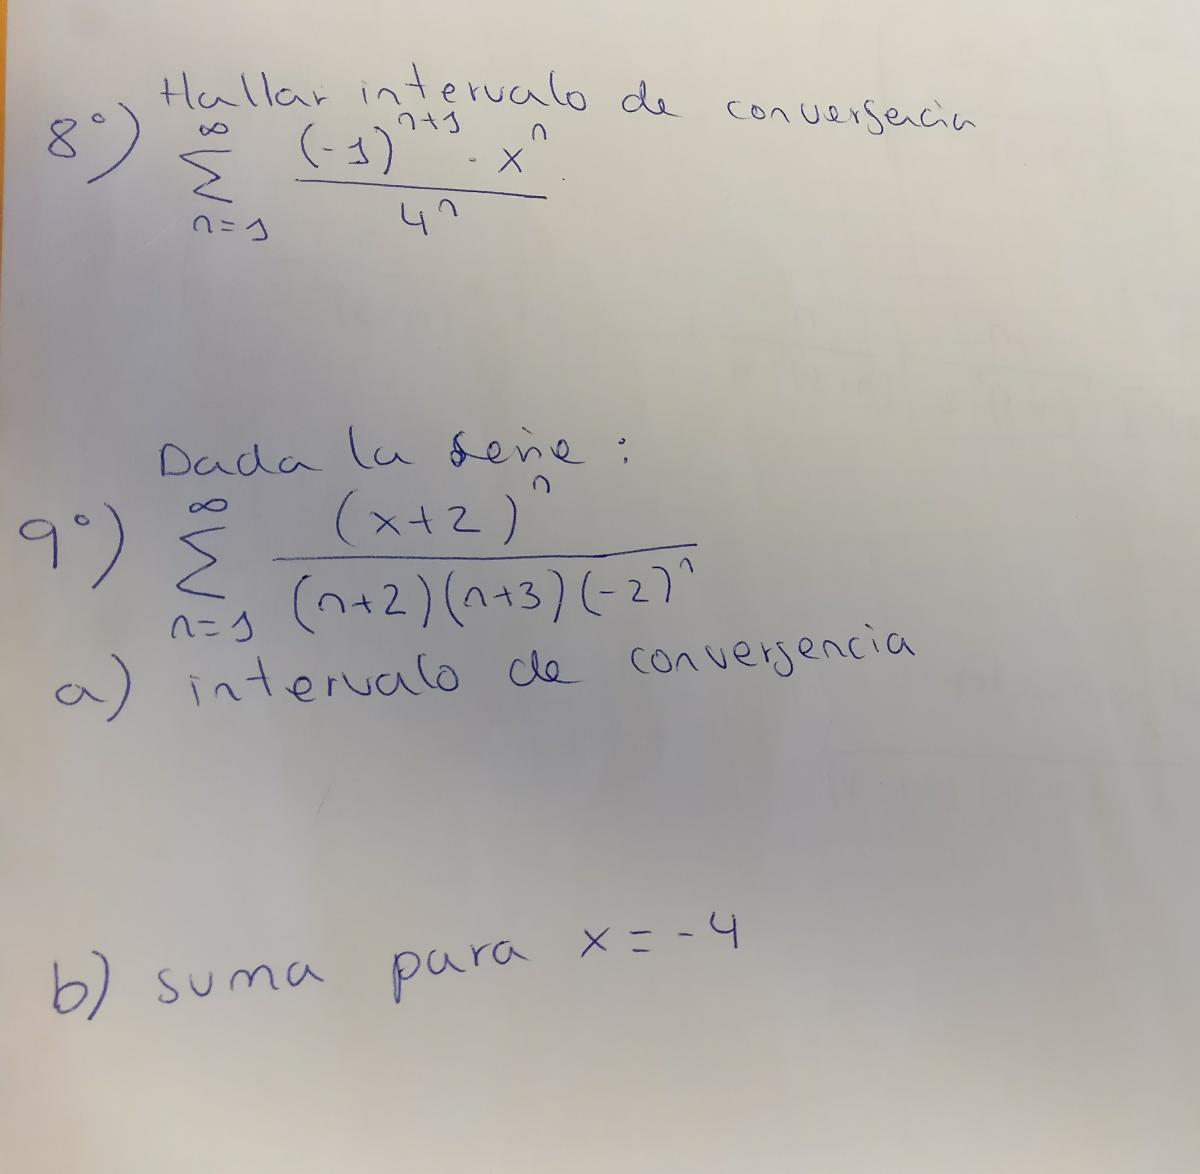 Hallar intervalo de convergencia
8°) ∑_{n=1}^{∞} \frac{(-1)^{n+1} · x^n}{4^n}
Dada la serie :
9°) ∑_{n=1}^{∞} \frac{(x+2)^n}{(n+2)(n+3)(-2)^n}
a) intervalo de convergencia
b) suma para x = -4